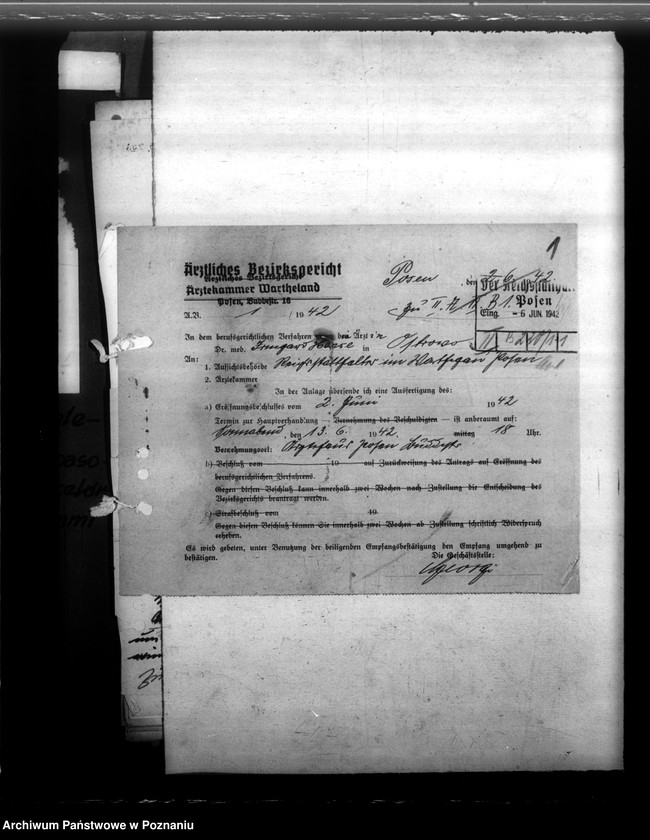 1
Ärztliches Bezirksgericht
Ärztliches Bezirksgericht
Ärztekammer Wartheland
Posen, Buddestr. 18
Posen, den 2.6. 42.
Der Reichsstatth
Posen
Eing. - 6 JUN. 1942
A.V. 1 / 1942
In dem berufsgerichtlichen Verfahren die Ärztin
Dr. med. Irmgard in Ostrowo
An:
1. Aufsichtsbehörde Reichsstatthalter im Warthegau Posen
2. Ärztekammer
In der Anlage übersende ich eine Ausfertigung des:
a) Eröffnungsbeschlusses vom 2. Juni 1942
Termin zur Hauptverhandlung – Vernehmung des Beschuldigten – ist anberaumt auf:
Sonnabend, den 13.6. 1942. mittag 18 Uhr.
Vernehmungsort: Ärztehaus Posen Buddestr.
b) Beschluß vom 19 auf Zurückweisung des Antrags auf Eröffnung des
berufsgerichtlichen Verfahrens.
Gegen diesen Beschluß kann innerhalb zwei Wochen nach Zustellung die Entscheidung des
Bezirksgerichts beantragt werden.
c) Strafbeschluß vom 19
Gegen diesen Beschluß können Sie innerhalb zwei Wochen ab Zustellung schriftlich Widerspruch
erheben.
Es wird gebeten, unter Benutzung der beiligenden Empfangsbestätigung den Empfang umgehend zu
bestätigen.
Die Geschäftsstelle:
Georgi
Archiwum Państwowe w Poznaniu